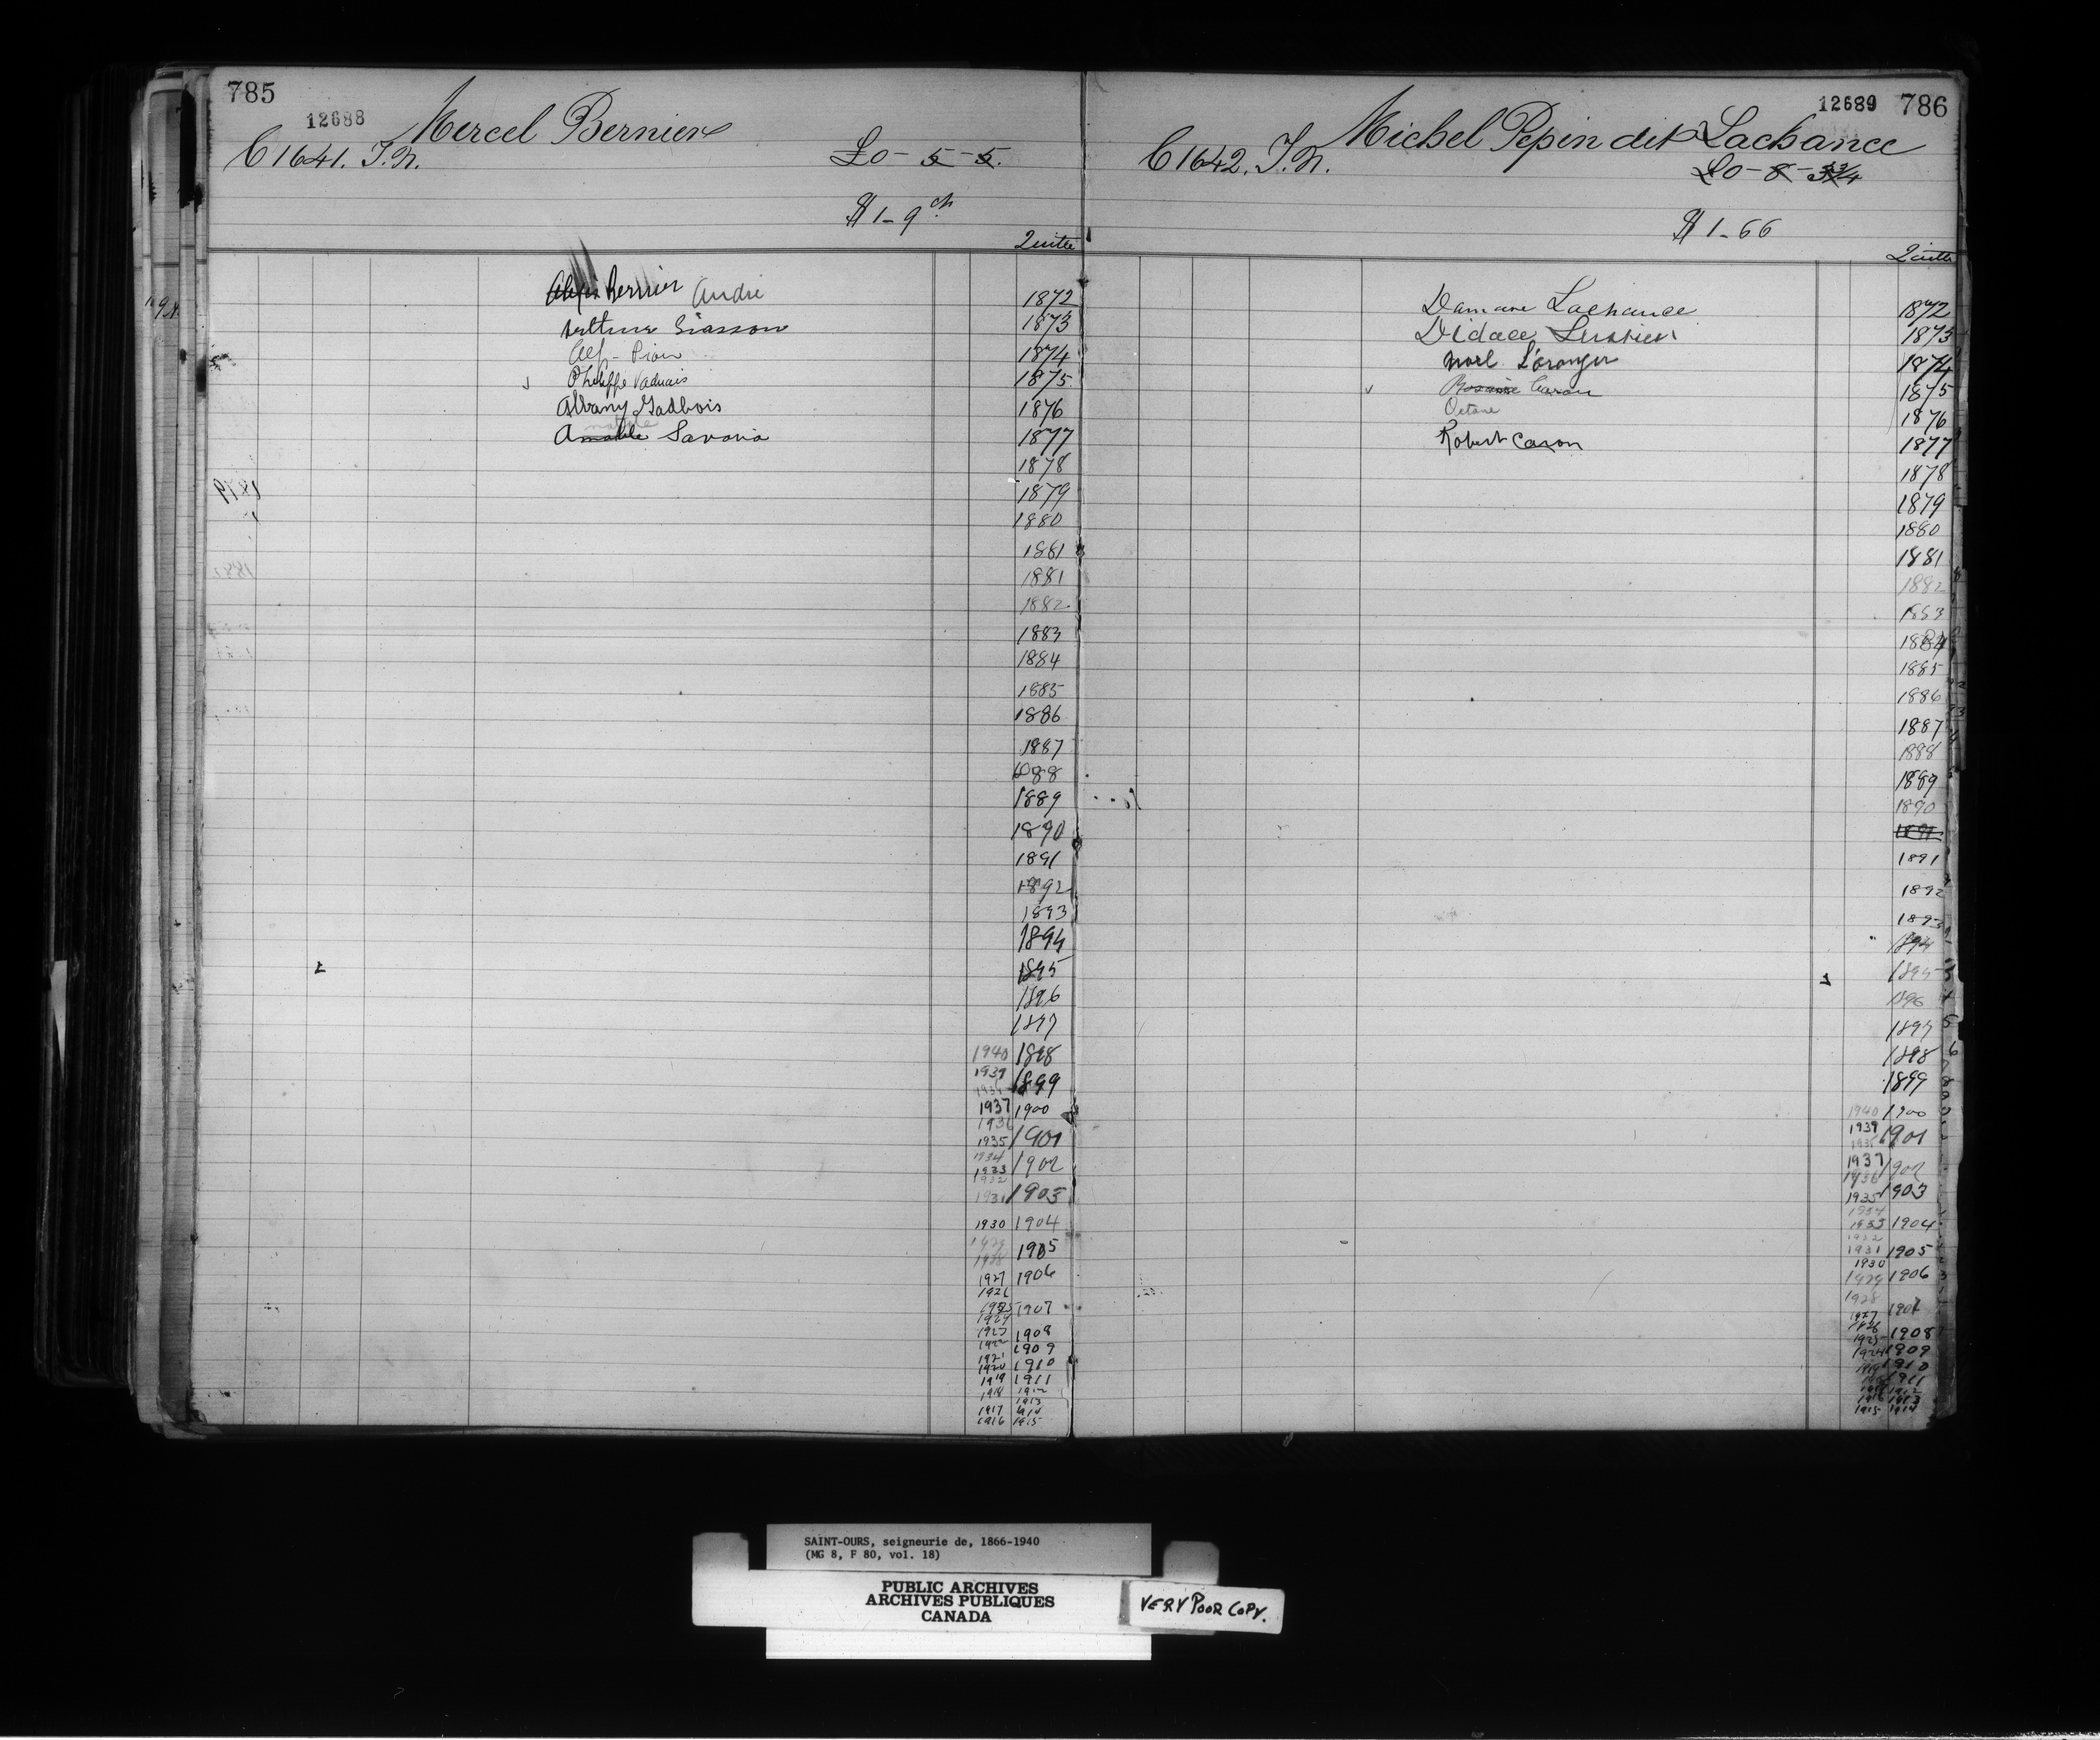 785
12688
Mercel Bernier
C 1641. T.N.
£0-5-5.
$1-9 cts
Quitte
Alexis Bernier André
1872
Siasson
1873
Alf - Pion
1874
Philippe Vadnais
1875
Albany Gadbois
1876
Amable Savaria
1877
1878
1879
1880
1881
1881
1882
1883
1884
1885
1886
1887
1888
1889
1890
1891
1892
1893
1894
1895
1896
1897
1940 1898
1939 1899
1937 1900
1936
1935 1901
1934
1933 1902
1932
1931 1903
1930 1904
1905
1927 1906
1926
1925 1907
1924
1923 1908
1922 1909
1921
1920 1910
1919 1911
1918 1912
1913
1917 1914
1916 1915
12689 786
Michel Pepin dit Lachance
C 1642. T.N.
£0-8-3 3/4
$1-66
Quitte
Damase Lachance
1872
Didace Lussier
1873
Noel L'oranger
1874
Caron
1875
Octave
1876
Robert Caron
1877
1878
1879
1880
1881
1882
1883
1884
1885
1886
1887
1888
1889
1890
1891
1891
1892
1893
1894
1895
1896
1897
1898
1899
1940 1900
1939 1901
1937 1902
1936
1935 1903
1934
1933 1904
1932
1931 1905
1930
1929 1906
1928
1927 1907
1926
1925 1908
1924 1909
1910
1911
1912
1916 1913
1915 1914
SAINT-OURS, seigneurie de, 1866-1940
(MG 8, F 80, vol. 18)
PUBLIC ARCHIVES
ARCHIVES PUBLIQUES
CANADA
VERY POOR COPY.